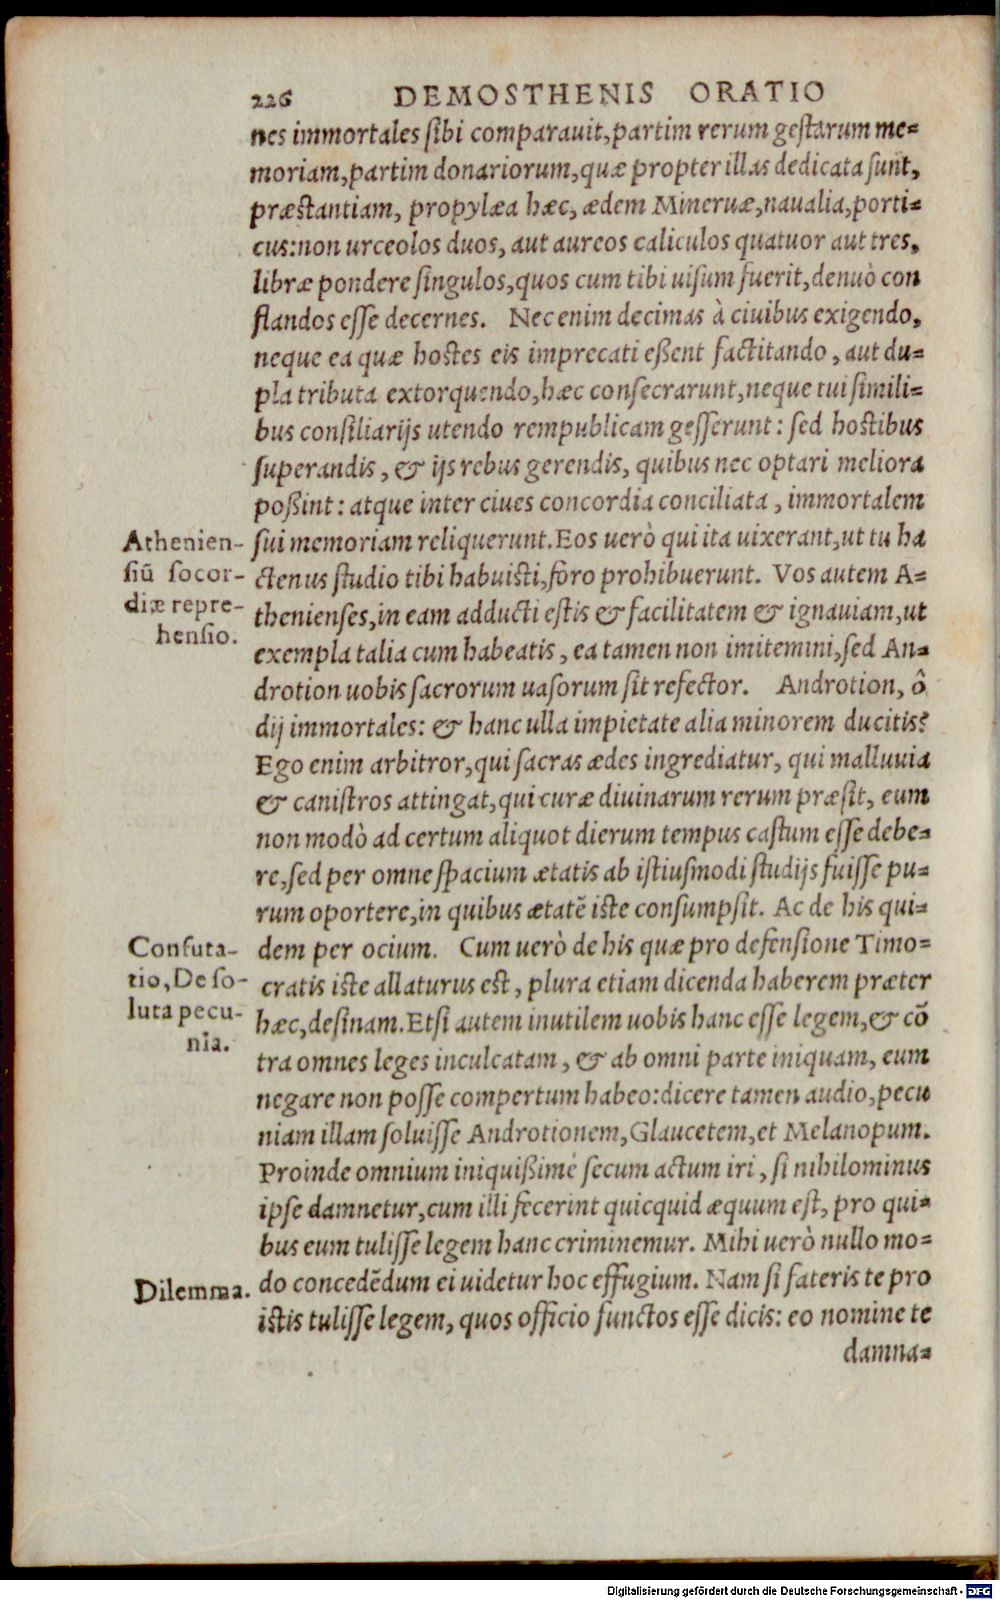 226 DEMOSTHENIS ORATIO
nes immortales sibi comparauit, partim rerum gestarum me=
moriam, partim donariorum, quæ propter illas dedicata sunt,
præstantiam, propylæa hæc, ædem Mineruæ, naualia, porti=
cus: non urceolos duos, aut aureos caliculos quatuor aut tres,
libræ pondere singulos, quos cum tibi uisum fuerit, denuò con
flandos esse decernes. Nec enim decimas à ciuibus exigendo,
neque ea quæ hostes eis imprecati eßent factitando, aut du=
pla tributa extorquendo, hæc consecrarunt, neque tui simili=
bus consiliarijs utendo rempublicam gesserunt: sed hostibus
superandis, & ijs rebus gerendis, quibus nec optari meliora
poßint: atque inter ciues concordia conciliata, immortalem
sui memoriam reliquerunt. Eos uerò qui ita uixerant, ut tu ha
ctenus studio tibi habuisti, foro prohibuerunt. Vos autem A=
thenienses, in eam adducti estis & facilitatem & ignauiam, ut
exempla talia cum habeatis, ea tamen non imitemini, sed An=
drotion uobis sacrorum uasorum sit refector. Androtion, ô
dij immortales: & hanc ulla impietate alia minorem ducitis?
Ego enim arbitror, qui sacras ædes ingrediatur, qui malluuia
& canistros attingat, qui curæ diuinarum rerum præsit, eum
non modò ad certum aliquot dierum tempus castum esse debe=
re, sed per omne spacium ætatis ab istiusmodi studijs fuisse pu=
rum oportere, in quibus ætatē iste consumpsit. Ac de his qui=
dem per ocium. Cum uerò de his quæ pro defensione Timo=
cratis iste allaturus est, plura etiam dicenda haberem præter
hæc, desinam. Etsi autem inutilem uobis hanc esse legem, & cō
tra omnes leges inculcatam, & ab omni parte iniquam, eum
negare non posse compertum habeo: dicere tamen audio, pecu
niam illam soluisse Androtionem, Glaucetem, et Melanopum.
Proinde omnium iniquißimè secum actum iri, si nihilominus
ipse damnetur, cum illi fecerint quicquid æquum est, pro qui=
bus eum tulisse legem hanc criminemur. Mihi uerò nullo mo=
do concedēdum ei uidetur hoc effugium. Nam si fateris te pro
istis tulisse legem, quos officio functos esse dicis: eo nomine te
damna=
Athenien-
siū socor-
diæ repre-
hensio.
Confuta-
tio, De so-
luta pecu-
nia.
Dilemma.
Digitalisierung gefördert durch die Deutsche Forschungsgemeinschaft - DFG